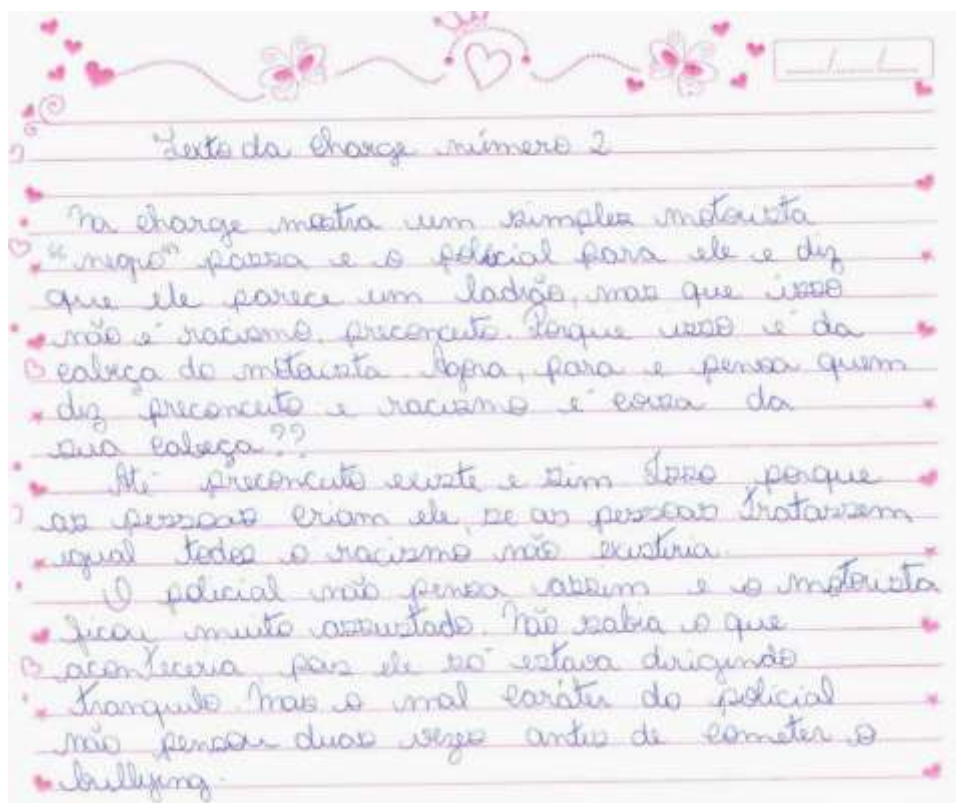 Texto da charge número 2
Na charge mostra um simples motorista
"negro" passa e o policial para ele e diz
que ele parece um ladrão, mas que isso
não é racismo. preconceito. Porque isso é da
cabeça do motorista. Agora, para e pensa quem
diz preconceito e racismo é coisa da
sua cabeça??
Até preconceito existe e sim Isso porque
as pessoas criam ele, se as pessoas tratassem
igual todos o racismo não existiria.
O policial não pensa assim e o motorista
ficou muito assustado. Não sabia o que
aconteceria pois ele só estava dirigindo
tranquilo. Mas o mal caráter do policial
não pensou duas vezes antes de cometer o
bullying.